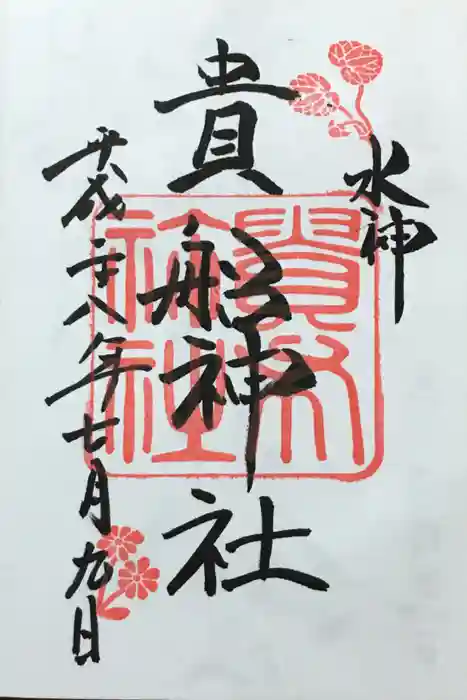 水神
貴船神社
平成二十八年七月九日